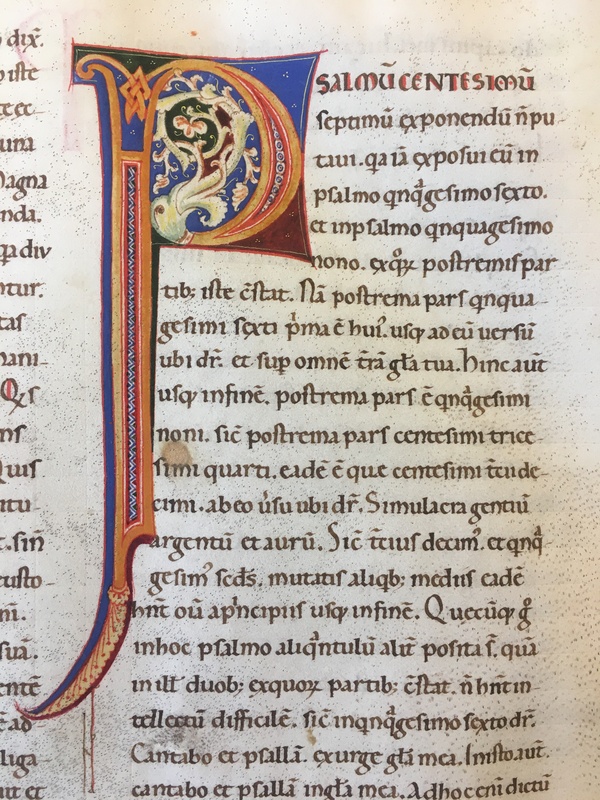 dix̅.
iste
ec
una
Magna
nda.
q̅a div
ntur.
tas
mani-
Qs
ns
Quis
itu-
t. sin̅
eusto-
ni̅.
suā.
entē
ē ad
liga-
ut et
PSALMŪ CENTESIMŪ
septimū ęxponendū n̅ pu-
taui. qa iā ęxposui eū in
psalmo qnq̄gesimo sęxto.
et inpsalmo qnquagesimo
nono. ęxqꝝ postremis par
tib; iste c̄stat. Nā postrema pars qnqua-
gesimi sęxti p̄ma ē hui'. usq; ad eū uersū
ubi dr̅. et sup omnē t̄rā gl̄a tua. hinc aūt
usq; infinē. postrema pars ē qnq̄gesimi
noni. sic̄ postrema pars centesimi trice-
simi quarti. eadē ē que centesimi t̄cii de-
cimi. ab eo ůsu ubi dr̅. Simulacra gentiū
argentū et aurū. Sic̄ t̄cius decim'. et qnq̄-
gesim' scd̄s. mutatis aliqb; mediis eadē
hn̄t oū a p̓ncipiis usq; infinē. Quecūq; g̊
inhoc psalmo aliq̓ntulū alit̄ posita s̄. quā
in ill̄ duob; ęxquoꝝ partib; c̄stat. n̄ hn̄t in-
tellectū difficilē. sic̄ inqnq̄gesimo sęxto dr̅.
Cantabo et psallā. ęxurge gl̄a mea. Inisto aūt.
cantabo et psallā ingl̄a mea. Adhoc eni dictū